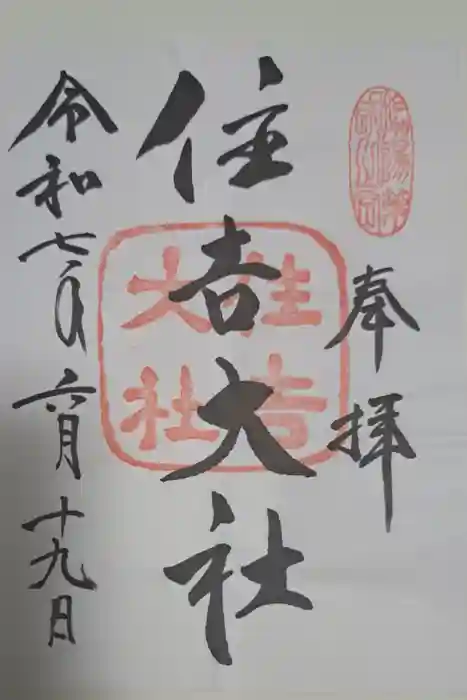 奉拝
住吉大社
住吉大社
令和七年六月十九日